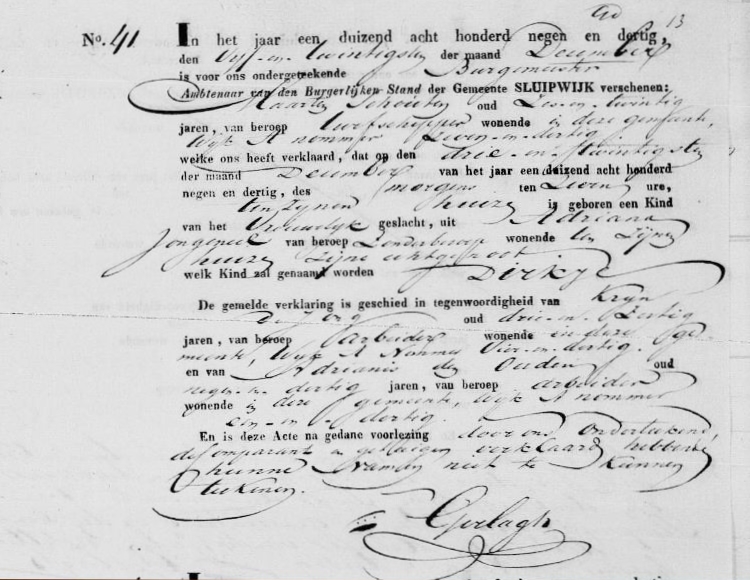 13
No. 41
In het jaar een duizend acht honderd negen en dertig,
den Vijf-en-twintigsten der maand December
is voor ons ondergeteekende Burgemeester
Ambtenaar van den Burgerlijken Stand der Gemeente SLUIPWIJK verschenen:
Maarten Schouten oud Zes-en-twintig
jaren, van beroep turfschipper wonende in deze gemeente,
Wijk A nommer Zeven-en-dertig.
welke ons heeft verklaard, dat op den drie-en-twintigsten
der maand December van het jaar een duizend acht honderd
negen en dertig, des morgens ten Zeven ure,
ten Zijnen huize is geboren een Kind
van het Vrouwelijk geslacht, uit Adriana
Jongeneel van beroep Zonderberoep wonende ten Zijnen
huize Zijne echtgenoot.
welk Kind zal genaamd worden Dirkje
De gemelde verklaring is geschied in tegenwoordigheid van Krijn
de Jong oud drie-en-dertig
jaren, van beroep arbeider wonende in deze ge
meente, Wijk A Nommer Vier-en-dertig.
en van Adrianis den Ouden oud
negen-en-dertig jaren, van beroep arbeider
wonende in deze gemeente, wijk A nommer
een-en-dertig.
En is deze Acte na gedane voorlezing door ons onderteekend,
de Comparant en getuigen verklaard hebbende
hunne Namen niet te kunnen
teekenen.
Gerlagh